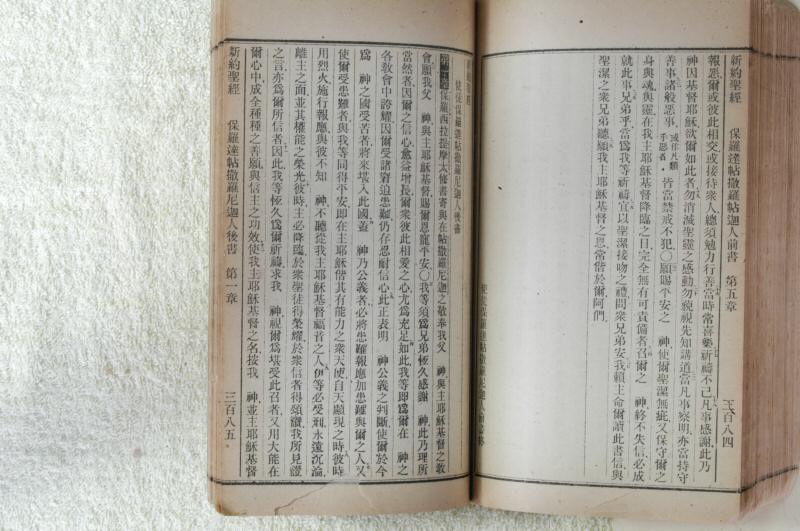 新約聖經 保羅達帖撒羅尼迦人前書 第五章 三百八四
報惡爾或彼此相交或接待衆人總須勉力行善當時常喜樂祈禱不已凡事感謝此乃
神因基督耶穌欲爾如此者勿消滅聖靈之感動勿藐視先知講道當凡事察明亦當持守
善事諸般惡事或作凡類乎惡者皆當禁戒不犯〇願賜平安之 神使爾聖潔無疵又保守爾之
身與魂與靈在我主耶穌基督降臨之日完全無有可責備者召爾之 神終不失信必成
就此事兄弟乎當爲我等祈禱宜以聖潔接吻之禮問衆兄弟安我賴主命爾讀此書信與
聖潔之衆兄弟聽願我主耶穌基督之恩常偕於爾阿們
使徒保羅達帖撒羅尼迦人前書終
使徒保羅達帖撒羅尼迦人後書
保羅西拉提摩太修書寄與在帖撒羅尼迦之敎奉我父 神與主耶穌基督之敎
會願我父 神與主耶穌基督賜爾恩寵平安〇我等須爲兄弟恆久感謝 神此乃理所
當然者因爾之信心愈益增長爾衆彼此相愛之心尤爲充足如此我等即爲爾在 神之
各敎會中誇耀因爾受諸窘迫患難仍存忍耐信心此正表明 神公義之判斷使爾於今
爲 神之國受苦者將來堪入此國蓋 神乃公義者必將患難報應加患難與爾之人又
使爾受患難者與我等同得平安即在主耶穌偕其有能力之衆天使自天顯現之時彼時
用烈火施行報應與彼不知 神不聽從我主耶穌基督福音之人伊等必受刑永遠沉淪
離主之面並其權能之榮光彼時主必降臨於衆聖徒得榮耀於衆信者得頌讚我所見證
之言亦爲爾所信者因此我等恆久爲爾祈禱求我 神視爾爲堪受此召者又用大能在
爾心中成全種種之善願與信主之功效使我主耶穌基督之名按我 神並主耶穌基督
新約聖經 保羅達帖撒羅尼迦人後書 第一章 三百八五